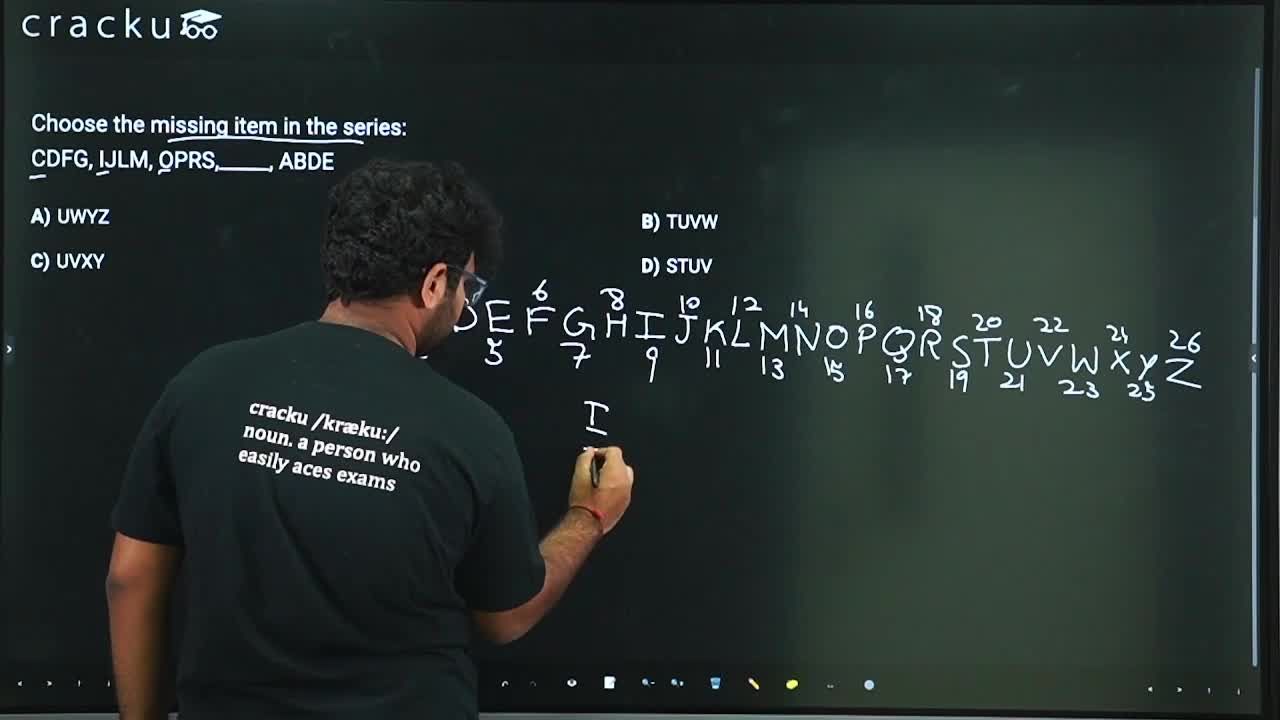 cracku
Choose the missing item in the series:
CDFG, IJLM, OPRS,____, ABDE
A) UWYZ
B) TUVW
C) UVXY
D) STUV
6 8 10 12 14 16 18 20 22 24 26
D E F G H I J K L M N O P Q R S T U V W X Y Z
5 7 9 11 13 15 17 19 21 23 25
I
cracku /kræku:/
noun. a person who
easily aces exams